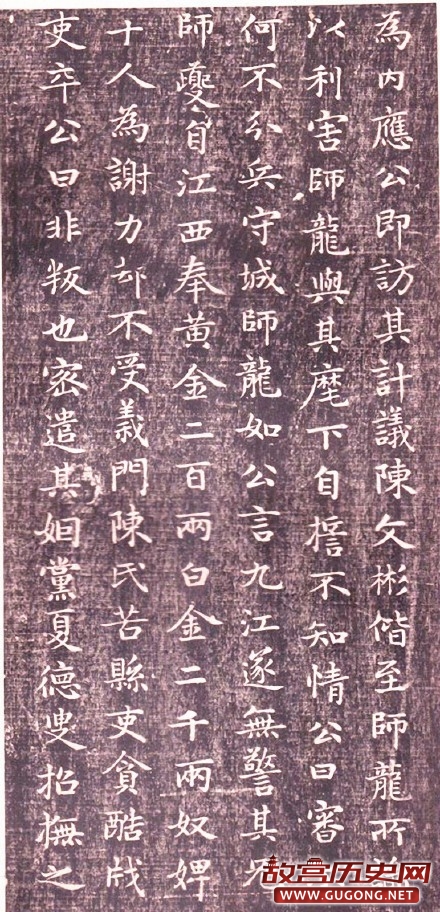 為内應公即訪其計議陳文彬偕至師龍所
以利害師龍與其麾下自誓不知情公曰審
何不分兵守城師龍如公言九江遂無警其
師夔自江西奉黄金二百兩白金二千兩奴婢
十人為謝力却不受義門陳氏苦縣吏貪酷戕
吏卒公曰非叛也宻遣其姻黨夏德叟招撫之
故宫历史网
WWW.GUGONG.NET